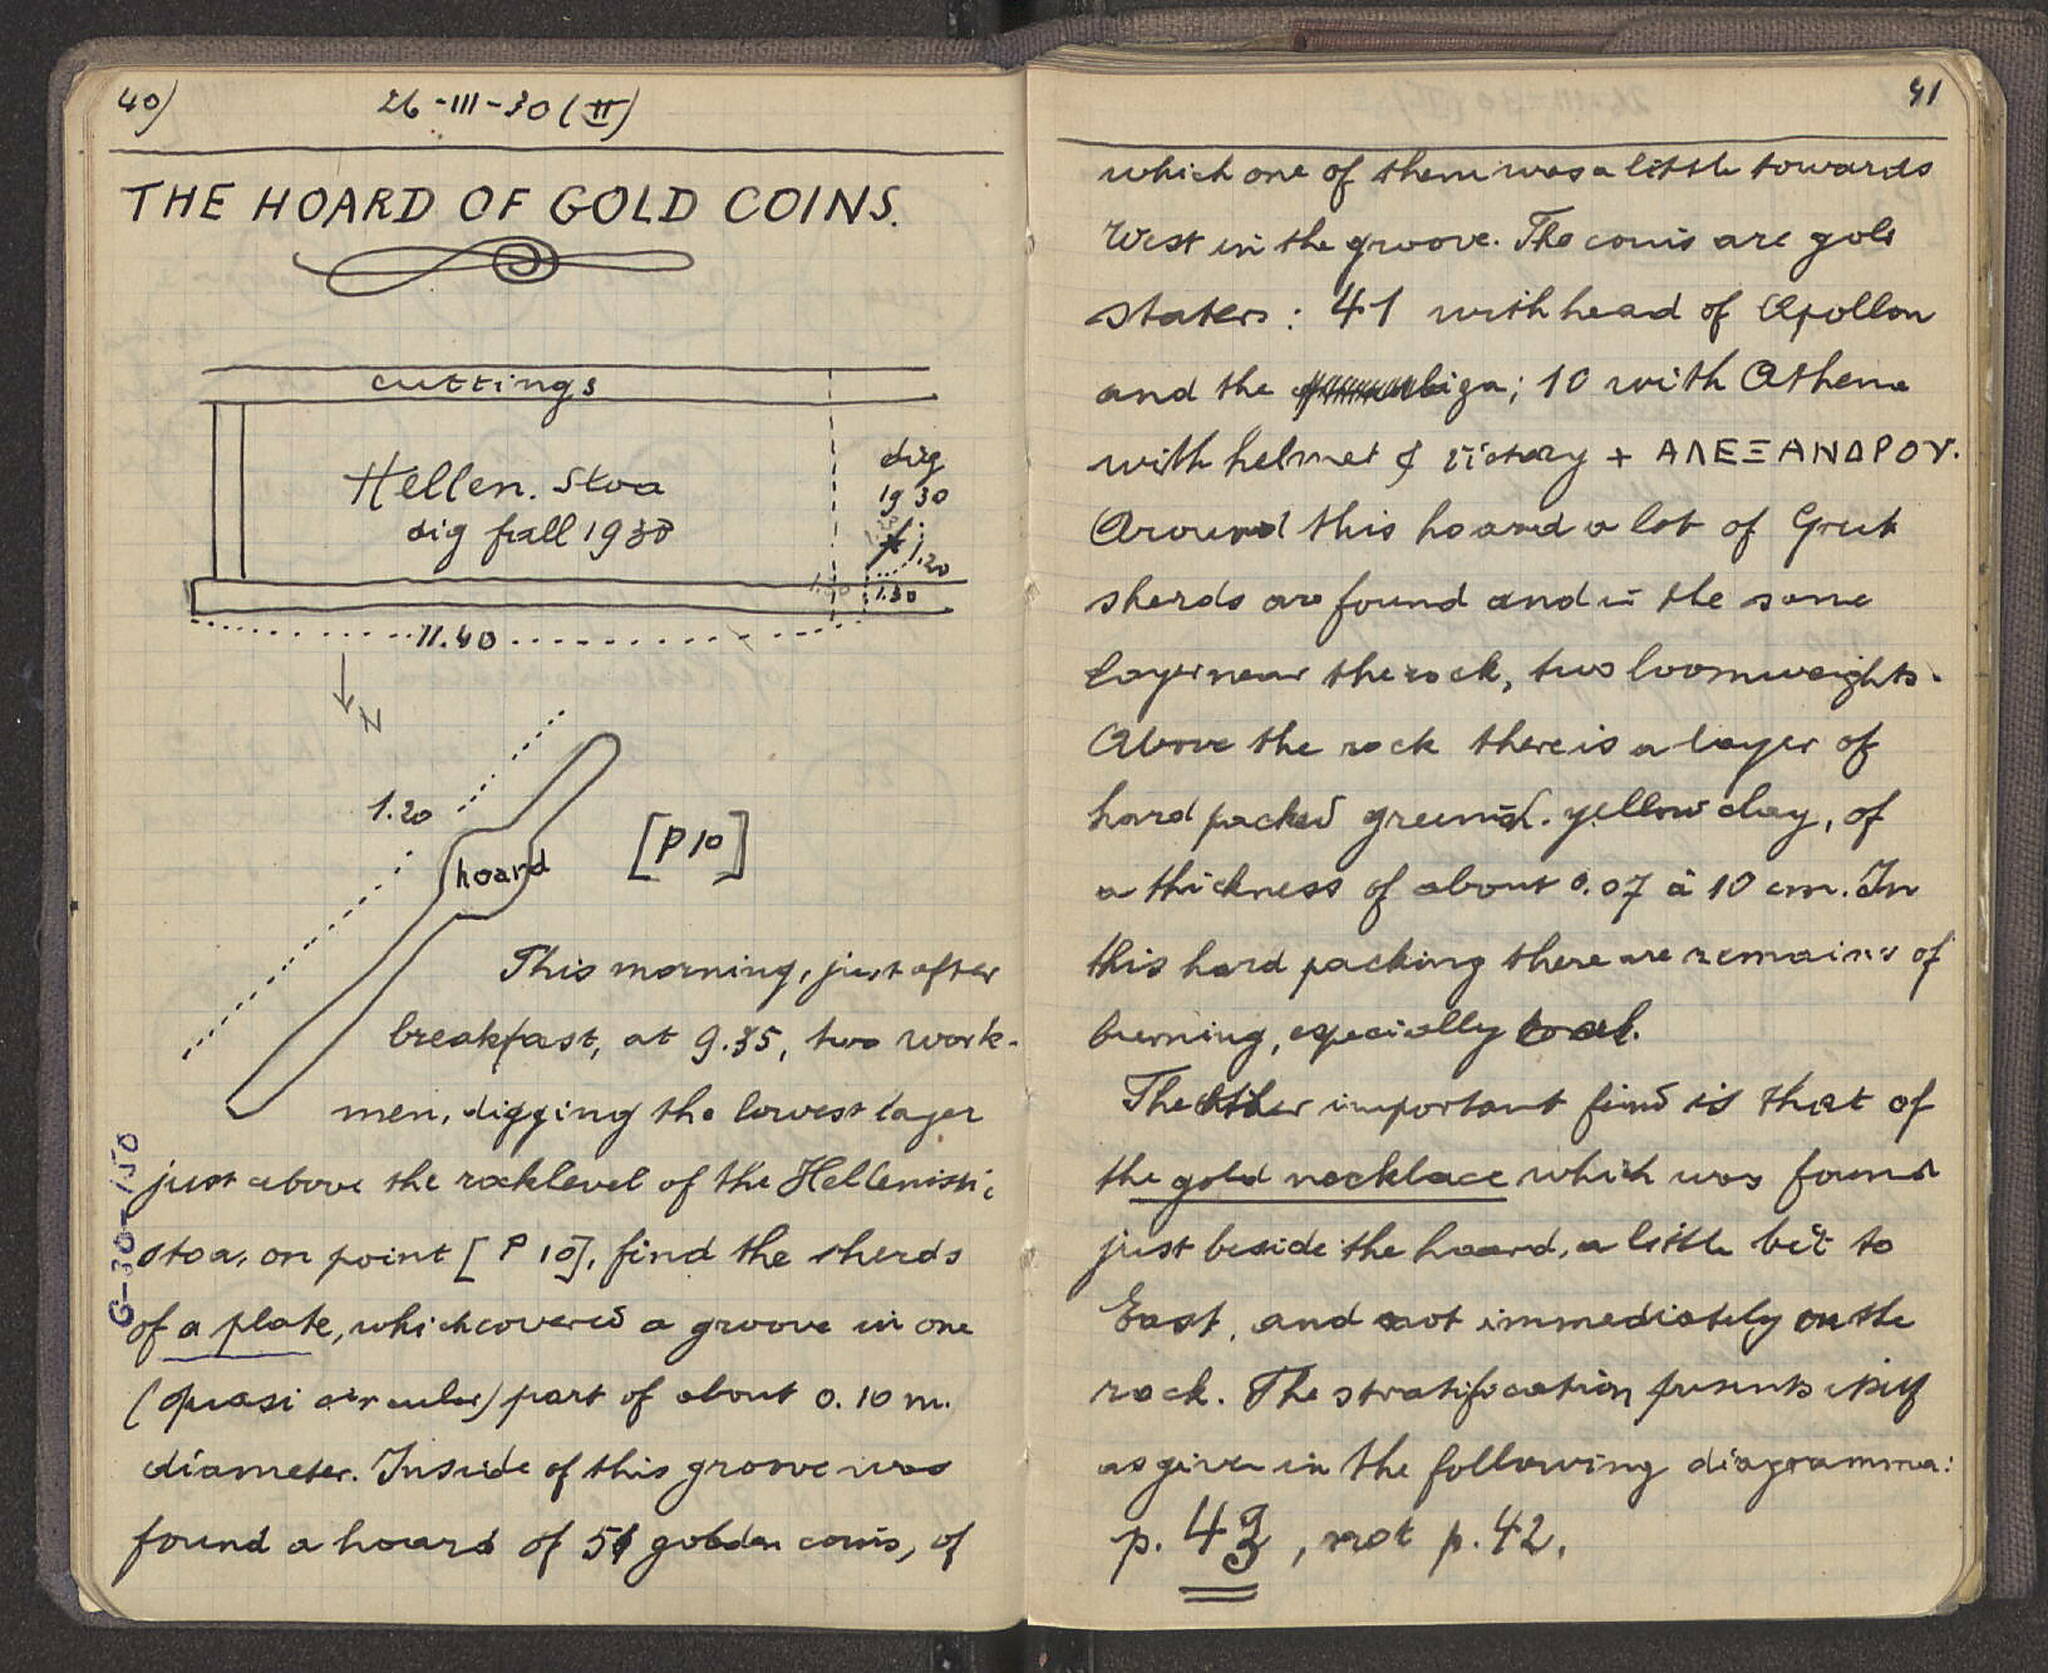 40)
26-III-30 (II)
THE HOARD OF GOLD COINS.
cuttings
Hellen. Stoa
dig fall 1930
dig
1930
1.20
1.30
11.40
N
1.20
hoard
[P 10]
This morning, just after
breakfast, at 9.35, two work-
men, digging the lowest layer
just above the rocklevel of the Hellenistic
stoa, on point [P 10], find the sherds
of a plate, which covered a groove in one
(quasi circular) part of about 0.10 m.
diameter. Inside of this groove was
found a hoard of 51 golden coins, of
G-30-150
41
which one of them was a little towards
West in the groove. The coins are gold
staters: 41 with head of Apollon
and the biga; 10 with Athena
with helmet & victory + ΑΛΕΞΑΝΔΡΟΥ.
Around this hoard a lot of Greek
sherds are found and in the same
layer near the rock, two loomweights.
Above the rock there is a layer of
hard packed greenish-yellow clay, of
a thickness of about 0.07 à 10 cm. In
this hard packing there are remains of
burning, especially coal.
The other important find is that of
the gold necklace which was found
just beside the hoard, a little bit to
East, and not immediately on the
rock. The stratification presents itself
as given in the following diagramma:
p. 43, not p. 42.